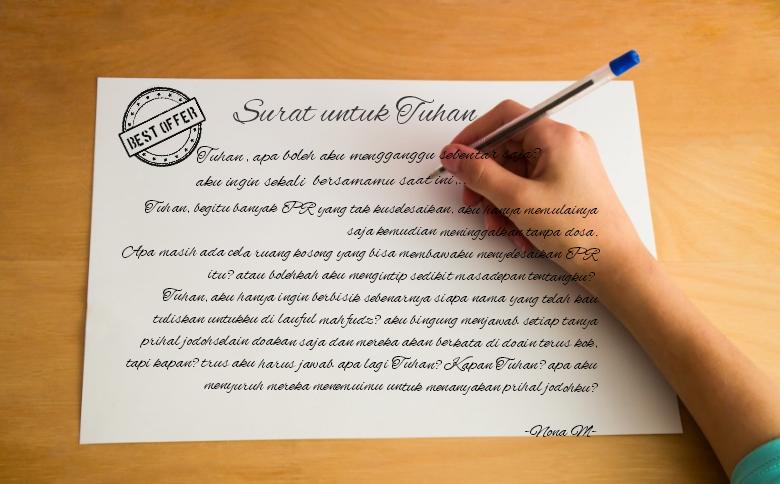 BEST OFFER
Surat untuk Tuhan
Tuhan, apa boleh aku mengganggu sebentar saja?
aku ingin sekali bersamamu saat ini...
Tuhan, begitu banyak PR yang tak kuselesaikan, aku hanya memulainya
saja kemudian meninggalkan tanpa dosa.
Apa masih ada cela ruang kosong yang bisa membawaku menyelesaikan PR
itu? atau bolehkah aku mengintip sedikit masadepan tentangku?
Tuhan, aku hanya ingin berbisik sebenarnya siapa nama yang telah kau
tuliskan untukku di lauful mahfudz? aku bingung menjawab setiap tanya
prihal jodohselain doakan saja dan mereka akan berkata di doain terus kok,
tapi kapan? trus aku harus jawab apa lagi Tuhan? Kapan Tuhan? apa aku
menyuruh mereka menemuimu untuk menanyakan prihal jodohku?
-Nona M-